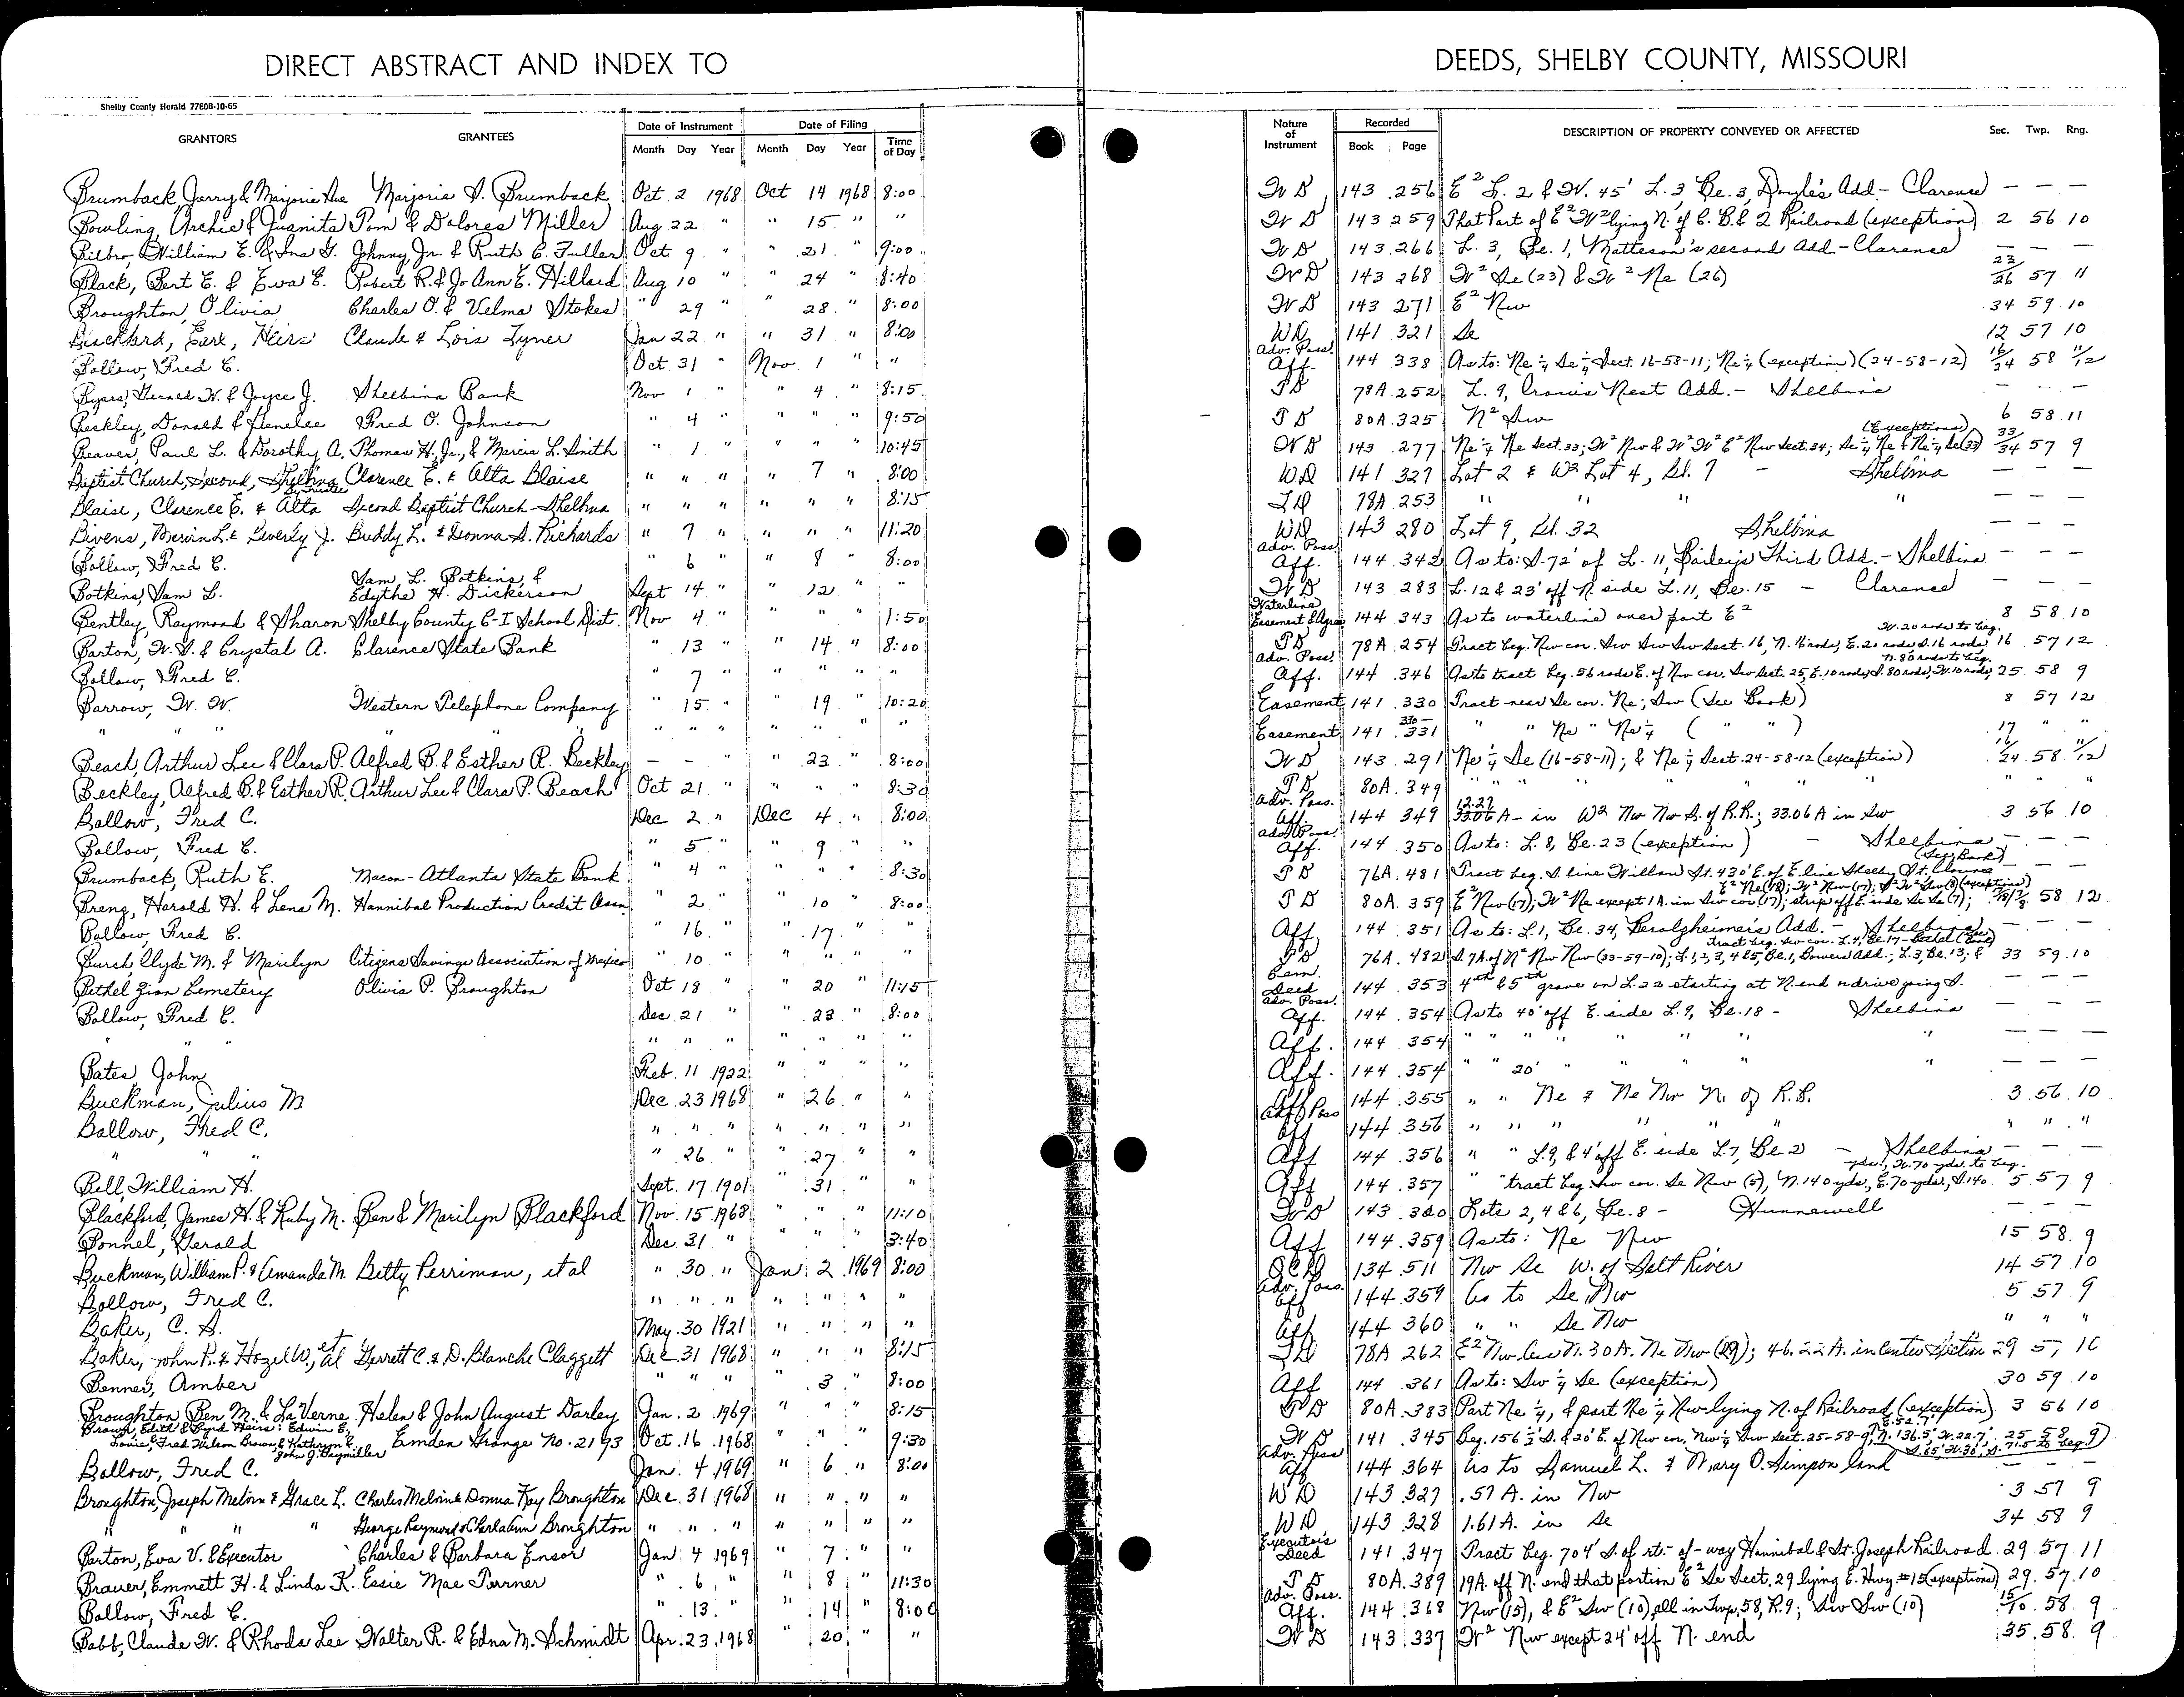 DIRECT ABSTRACT AND INDEX TO DEEDS, SHELBY COUNTY, MISSOURI
Shelby County Herald 7780B-10-65
GRANTORS GRANTEES Date of Instrument Month Day Year Date of Filing Month Day Year Time of Day Nature of Instrument Recorded Book Page DESCRIPTION OF PROPERTY CONVEYED OR AFFECTED Sec. Twp. Rng.
Brumback, Jerry & Marjorie Sue Marjorie S. Brumback Oct 2 1968 Oct 14 1968 8:00 W D 143 256 E² L. 2 & W. 45' L. 3 Be. 3, Doyle's Add - Clarence — — —
Bowling, Archie & Juanita Tom & Dolores Miller Aug 22 " " 15 " " W D 143 259 That Part of E² W² lying N. of C. B. & Q Railroad (exception) 2 56 10
Bilbro, William E. & Ina G. Johnny Jr. & Ruth C. Fuller Oct 9 " " 21 " 9:00 W D 143 266 L. 3, Be. 1, Matteson's second Add. - Clarence — — —
Black, Bert E. & Eva E. Robert R. & Jo Ann E. Hillard Aug 10 " " 24 " 8:40 W D 143 268 W² Se (23) & W² Ne (26) 23/26 57 11
Broughton, Olivia Charles O. & Velma Stokes " 29 " 28 " 8:00 W D 143 271 E² Nw 34 59 10
Earl, Heirs Claude & Lois Tyner Jan 22 " " 31 " 8:00 WD 141 321 Se 12 57 10
Bollow, Fred C. Oct 31 " Nov 1 " " Adv. Poss. Aff. 144 338 As to: Ne ¼ Se ¼ Sect. 16-58-11; Ne ¼ (exception) (24-58-12) 16/24 58 11/12
Byars, Gerald W. & Joyce J. Shelbina Bank Nov 1 " " 4 " 8:15 T D 78A 252 L. 9, Crow's Nest Add. - Shelbina — — —
Beckley, Donald & Fred O. Johnson " 4 " " " " 9:50 T D 80A 325 N² Sw 6 58 11
Beaver, Paul L. & Dorothy A. Thomas H., Jr., & Marcia L. Smith " 1 " " " " 10:45 W D 143 277 Ne ¼ Ne Sect. 33; W² Nw & W² W² E² Nw Sect. 34; Se ¼ Ne & Ne ¼ Se (33) (Exceptions) 33/34 57 9
Baptist Church, Second, Shelbina by Trustee Clarence E. & Alta Blaise " " " " 7 " 8:00 WD 141 327 Lot 2 & W² Lot 4, Bl. 7 - Shelbina — — —
Blaise, Clarence E. & Alta Second Baptist Church - Shelbina " " " " " " 8:15 TD 78A 253 " " " " — — —
Bivens, Merwin L. & Beverly J. Buddy L. & Donna S. Richards " 7 " " " " 11:20 WD 143 280 Lot 9, Bl. 32 Shelbina — — —
Bollow, Fred C. " 6 " 8 " 8:00 Adv. Poss. Aff. 144 342 As to: S. 72' of L. 11, Bailey's Third Add. - Shelbina — — —
Botkins, Sam L. Sam L. Botkins, & Edythe H. Dickerson Sept 14 " " 12 " W D 143 283 L. 12 & 23' off N. side L. 11, Be. 15 - Clarence — — —
Bentley, Raymond & Sharon Shelby County C-I School Dist. Nov 4 " " " " 1:50 Waterline Easement & Agree 144 343 As to waterline over part E² 8 58 10
Barton, W. S. & Crystal A. Clarence State Bank " 13 " " 14 " 8:00 T D 78A 254 Tract beg. Nw cor. Sw Sw Sw Sect. 16, N. 16 rods, E. 20 rods S. 16 rods W. 20 rods to beg. 16 57 12
Bollow, Fred C. " 7 " " " " " Adv. Poss. Aff. 144 346 As to tract beg. 56 rods E. of Nw cor. Sw Sect. 25, E. 10 rods, S. 80 rods, W. 10 rods, N. 80 rods to beg. 25 58 9
Barrow, W. W. Western Telephone Company " 15 " " 19 " 10:20 Easement 141 330 Tract near Se cor. Ne; Sw (See Book) 8 57 12
" " " " " " " " " " " Easement 141 330-331 " " Ne " Ne ¼ ( " " ) 17 " "
Beach, Arthur Lee & Clara P. Alfred B. & Esther R. Beckley — — " " 23 " 8:00 W D 143 291 Ne ¼ Se (16-58-11); & Ne ¼ Sect. 24-58-12 (exception) 16/24 58 11/12
Beckley, Alfred B. & Esther R. Arthur Lee & Clara P. Beach Oct 21 " " " " 8:30 T D 80A 349 " " " " " " "
Bollow, Fred C. Dec 2 " Dec 4 " 8:00 Adv. Poss. Aff. 144 349 12.27 33.06 A - in W² Nw Nw S. of R.R.; 33.06 A in Sw 3 56 10
Bollow, Fred C. " 5 " " 9 " Adv. Poss. Aff. 144 350 As to: L. 8, Be. 23 (exception) - Shelbina — — —
Brumback, Ruth E. Macon-Atlanta State Bank " 4 " " " " 8:30 T D 76A 481 Tract beg. S. line Willow St. 430' E. of E. line Shelby St. Clarence (See Book) — — —
Breng, Harold H. & Lena M. Hannibal Production Credit Assn. " 2 " 10 " 8:00 T D 80A 359 E² Nw (17); W² Ne except 1 A. in Sw cor (17); strip off E. side Se Se (7); E² Ne (18); W² Nw (17); (exceptions) 58 12
Bollow, Fred C. " 16 " 17 " " Aff 144 351 As to: L. 1, Be. 34, Beralgheimer's Add. - Shelbina — — —
Burch, Clyde M. & Marilyn Citizens Savings Association of Mexico " 10 " " " " T D 76A 482 S. 7A. of N² Nw Nw (33-59-10); L. 1, 2, 3, 4 & 5, Be. 1, Bowers Add.; L. 3, Be. 13; & tract beg. Sw cor. L. 4, Be. 17 - Bethel (See Book) 33 59 10
Bethel Zion Cemetery Olivia P. Broughton Oct 18 " 20 " 11:15 Cem. Deed 144 353 4th & 5th grave on L. 22 starting at N. end n drive going S.
Bollow, Fred C. Dec 21 " 23 " 8:00 Adv. Poss. Aff. 144 354 As to 40' off E. side L. 9, Be. 18 - Shelbina — — —
" " " " " " " " " Aff. 144 354 " " " " " " " — — —
Bates John Feb. 11 1922 " " " " Aff. 144 354 " " 20' " " " " — — —
Buckman, Julius M Dec 23 1968 " 26 " " Aff 144 355 " " Ne & Ne Nw N. of R.R. 3 56 10
Bollow, Fred C. " " " " " " " Adv Poss Aff 144 356 " " " " " " " " "
" " " 26 " " 27 " " Aff 144 356 " " L. 9, & 4' off E. side L. 7, Be. 2 - Shelbina — — —
Bell, William H. Sept. 17 1901 " 31 " " Aff 144 357 " " tract beg. Sw cor. Se Nw (5), N. 140 yds., E. 70 yds., S. 140 yds., W. 70 yds. to beg. 5 57 9
Blackford, James H. & Ruby M. Ben & Marilyn Blackford Nov. 15 1968 " " " 11:10 W D 143 320 Lots 2, 4 & 6, Be. 8 - Hunnewell — — —
Bonnel, Gerald Dec 31 " " " " 3:40 Aff 144 359 As to: Ne Nw 15 58 9
Buckman, William P. & Amanda M. Betty Perriman, et al " 30 " Jan. 2 1969 8:00 QCD 134 511 Nw Se W. of Salt River 14 57 10
Bollow, Fred C. " " " " " " " Adv. Poss. Aff 144 359 As to Se Nw 5 57 9
Baker, C. S. May 30 1921 " " " " Aff 144 360 " " Se Nw " " "
Baker, John R. & Hazel W., et al Garrett C. & D. Blanche Claggett Dec 31 1968 " " " 8:15 TD 78A 262 E² Nw less N. 30 A. Ne Nw (29); 46.22 A. in Center Section 29 57 10
Benner, Amber " " " " 3 " 8:00 Aff 144 361 As to: Sw ¼ Se (exception) 30 59 10
Broughton Ben M. & La Verne Helen & John August Darley Jan. 2 1969 " " " 8:15 T D 80A 383 Part Ne ¼, & part Ne ¼ Nw lying N. of Railroad (exception) 3 56 10
Brough, Edith & Byrd Heirs: Edwin E., Louie, Fred, Wilson Brown, & Kathryn E. John G. Taymiller Emden Grange No. 2193 Oct. 16 1968 " " " 9:30 W D 141 345 Beg. 156½' S. & 20' E. of Nw cor. Nw ¼ Sw Sect. 25-58-9, E. 52.7', N. 136.5', W. 22.7', S. 65', W. 30', S. 71.5' to beg.) 25 58 9
Bollow, Fred C. Jan. 4 1969 " 6 " 8:00 Adv. Poss Aff 144 364 As to Samuel L. & Mary O. Simpson land — — —
Broughton, Joseph Melvin & Grace L. Charles Melvin & Donna Kay Broughton Dec. 31 1968 " " " " W D 143 327 .57 A. in Nw 3 57 9
" " " " George Raymond & Charla Ann Broughton " " " " " " " W D 143 328 1.61 A. in Se 34 58 9
Barton, Eva V. & Executor Charles & Barbara Ensor Jan. 4 1969 " 7 " " Executor's Deed 141 347 Tract beg. 704' S. of rt.-of-way Hannibal & St. Joseph Railroad 29 57 11
Brauer, Emmett H. & Linda K. Essie Mae Turner " 6 " " 8 " 11:30 T D 80A 389 19A. off N. end that portion E² Se Sect. 29 lying E. Hwy. #15 (exceptions) 29 57 10
Bollow, Fred C. " 13 " " 14 " 8:00 Adv. Poss. Aff. 144 368 Nw (15), & E² Sw (10), all in Twp. 58, R. 9; Sw Sw (10) 15/10 58 9
Babb, Claude W. & Rhoda Lee Walter R. & Edna M. Schmidt Apr. 23 1968 " 20 " " W D 143 337 W² Nw except 24' off N. end 35 58 9